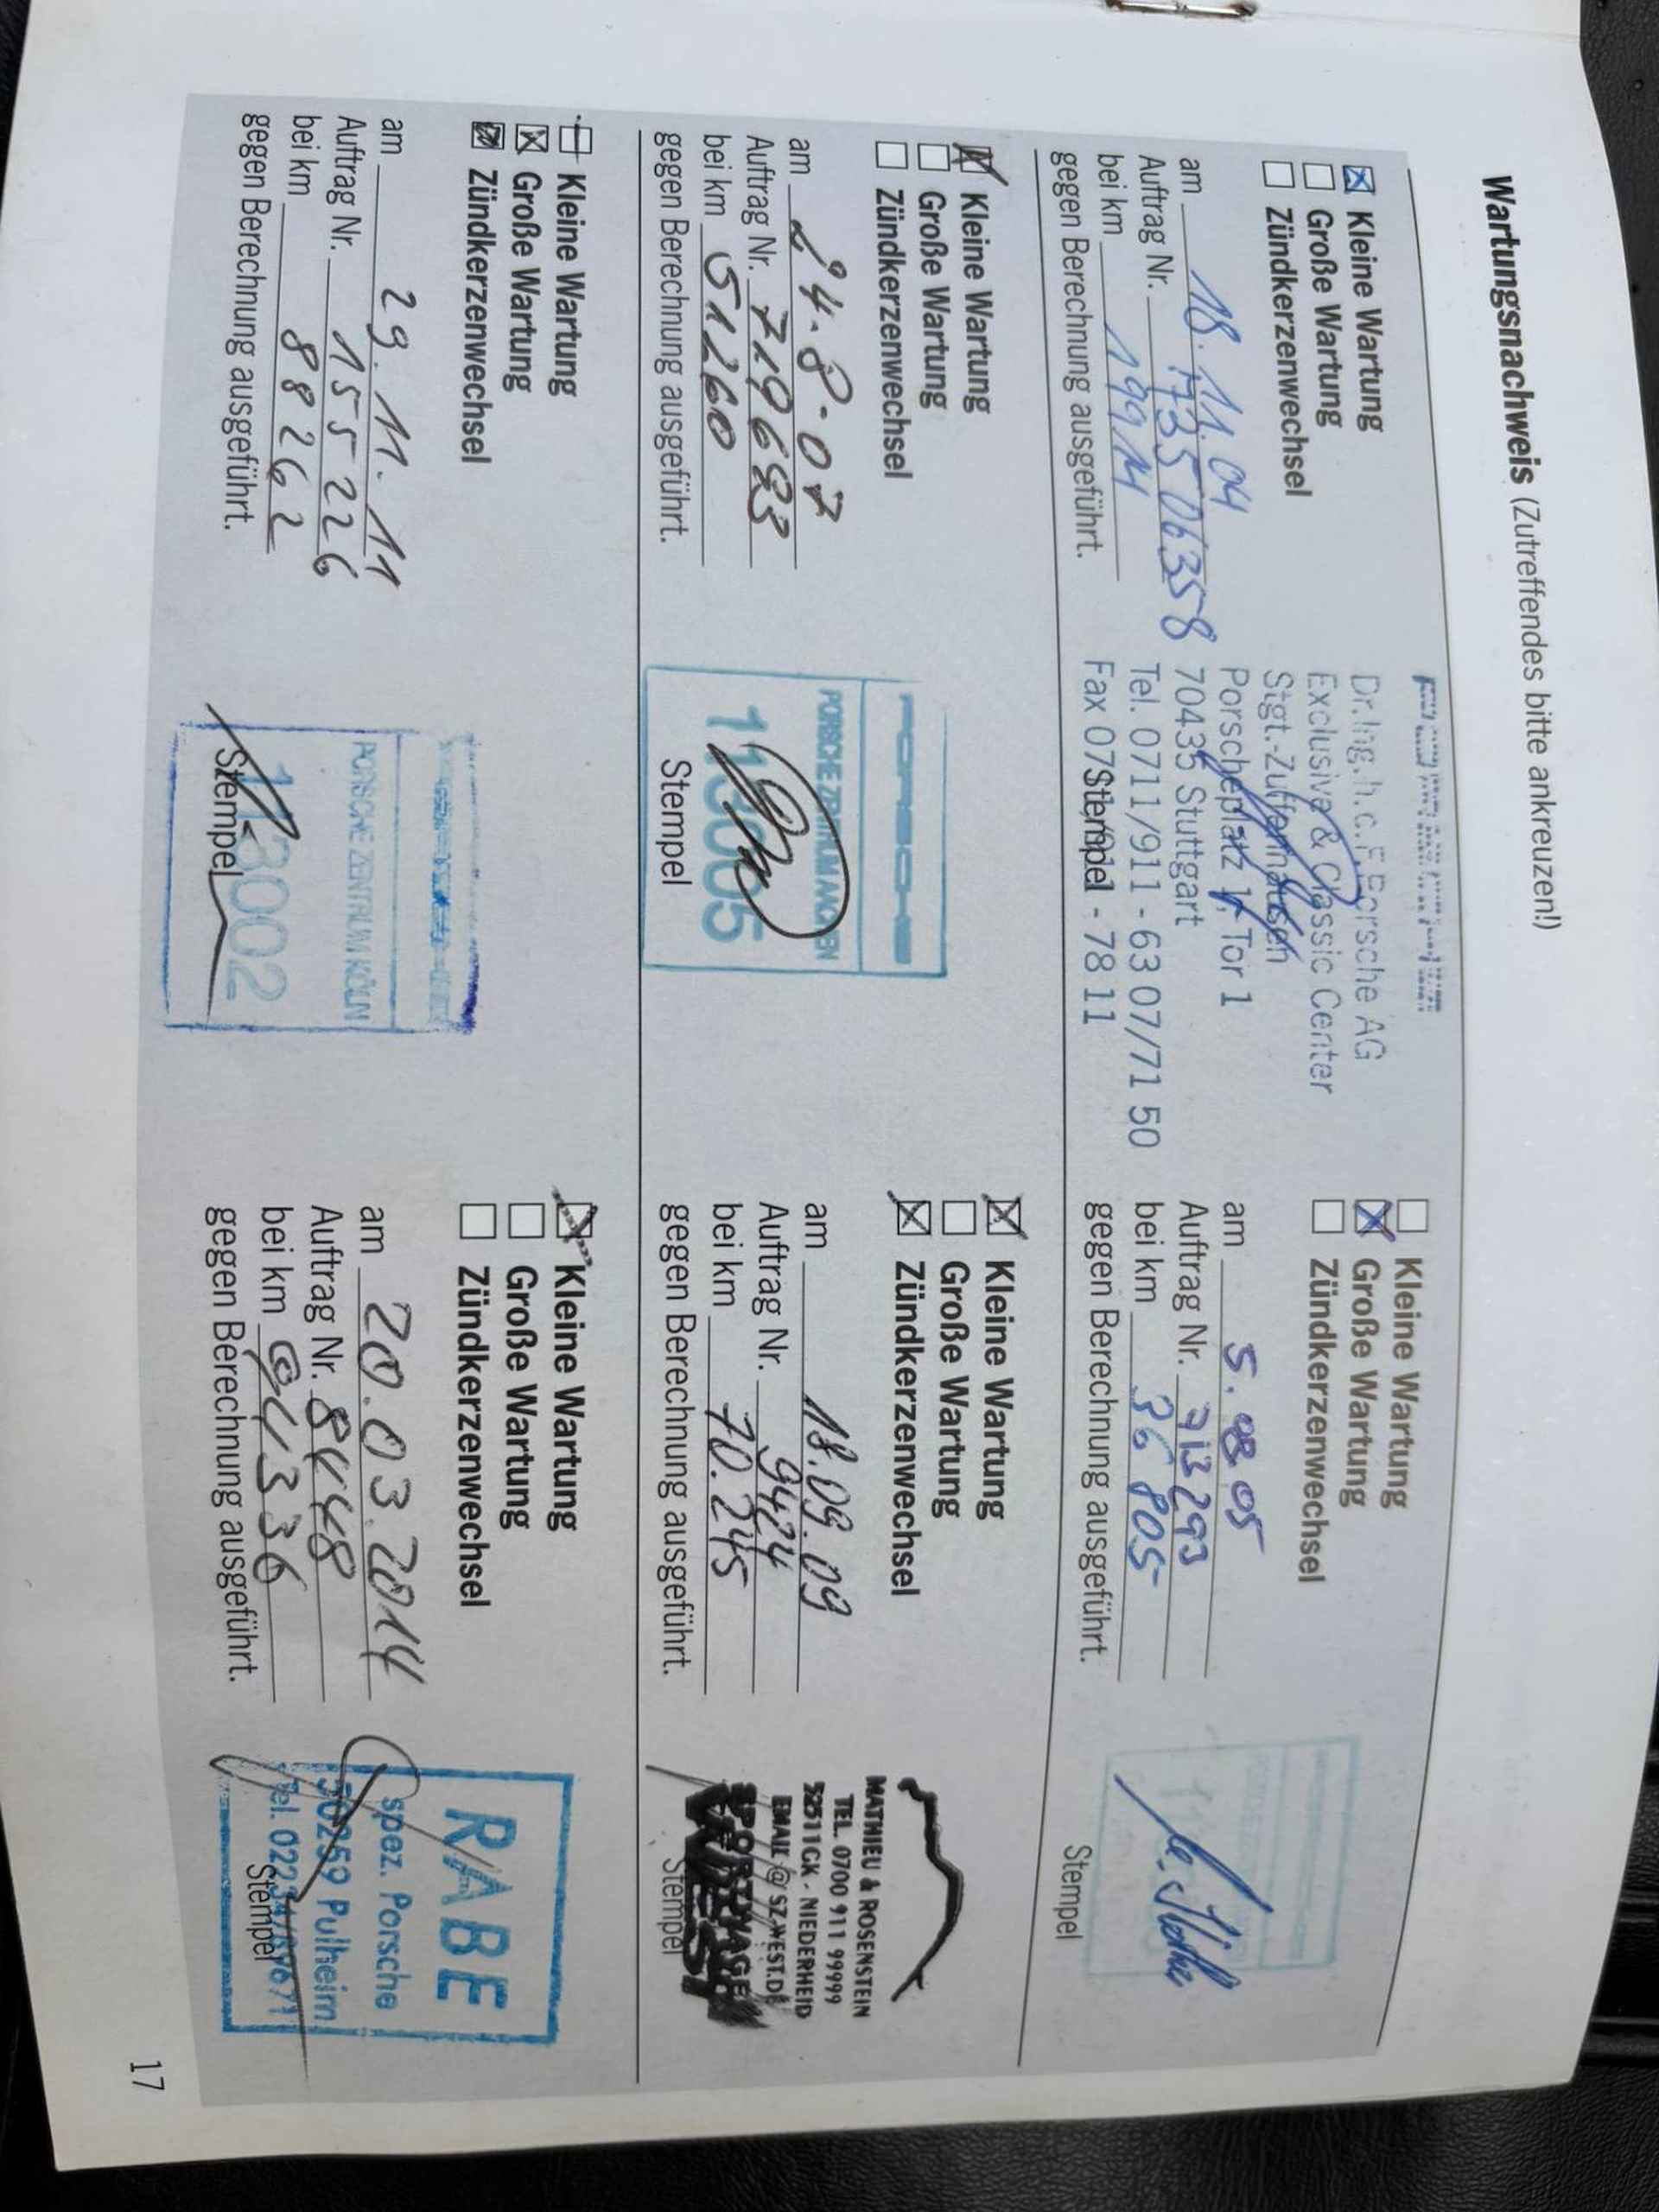 Wartungsnachweis (Zutreffendes bitte ankreuzen!)
Kleine Wartung
Große Wartung
Zündkerzenwechsel
am 18.11.04
Auftrag Nr. 06358
bei km 19914
gegen Berechnung ausgeführt.
PORSCHE
Dr.Ing.h.c.F.Porsche AG
Exclusive & Classic Center
Stgt.-Zuffenhausen
Porscheplatz 1, Tor 1
70435 Stuttgart
Tel. 0711/911-63 07/71 50
Fax 07 - 78 11
Stempel
Kleine Wartung
Große Wartung
Zündkerzenwechsel
am 5.08.05
Auftrag Nr. 713293
bei km 36 805
gegen Berechnung ausgeführt.
Stempel
Kleine Wartung
Große Wartung
Zündkerzenwechsel
am 24.8.07
Auftrag Nr. 719683
bei km 51260
gegen Berechnung ausgeführt.
PORSCHE
PORSCHE ZENTRUM AACHEN
Stempel
Kleine Wartung
Große Wartung
Zündkerzenwechsel
am 18.09.09
Auftrag Nr. 9424
bei km 70.245
gegen Berechnung ausgeführt.
MATHIEU & ROSENSTEIN
TEL. 0700 911 99999
52511 GK - NIEDERHEID
EMAIL @ SZ-WEST.DE
SPORTWAGEN
Stempel
Kleine Wartung
Große Wartung
Zündkerzenwechsel
am 29.11.11
Auftrag Nr. 155226
bei km 88262
gegen Berechnung ausgeführt.
PORSCHE ZENTRUM KÖLN
113002
Stempel
Kleine Wartung
Große Wartung
Zündkerzenwechsel
am 20.03.2014
Auftrag Nr. 8448
bei km 94336
gegen Berechnung ausgeführt.
RABE
spez. Porsche
50259 Pulheim
Tel.
Stempel
17